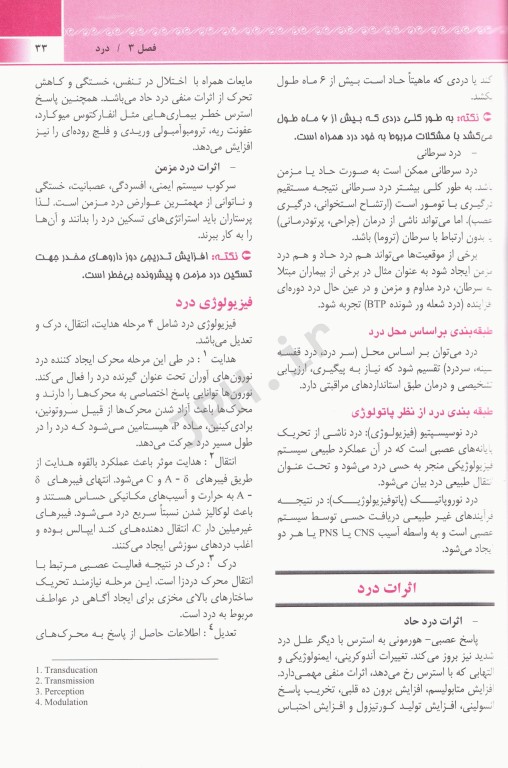 فصل ۳ / درد
۳۳
کند یا دردی که ماهیتاً حاد است بیش از ۶ ماه طول
بکشد.
نکته: به طور کلی دردی که بیش از ۶ ماه طول
می‌کشد با مشکلات مربوط به خود درد همراه است.
– درد سرطانی
درد سرطانی ممکن است به صورت حاد یا مزمن
باشد. به طور کلی بیشتر درد سرطانی نتیجه مستقیم
درگیری با تومور است (ارتشاح استخوانی، درگیری
عصب). اما می‌تواند ناشی از درمان (جراحی، پرتودرمانی)
یا بدون ارتباط با سرطان (تروما) باشد.
برخی از موقعیت‌ها می‌تواند هم درد حاد و هم درد
مزمن ایجاد شود به عنوان مثال در برخی از بیماران مبتلا
به سرطان، درد مداوم و مزمن و در عین حال درد دوره‌ای
فزاینده (درد شعله ور شونده BTP) تجربه شود.
طبقه‌بندی براساس محل درد
درد می‌توان بر اساس محل (سر درد، درد قفسه
سینه، سردرد) تقسیم شود که نیاز به پیگیری، ارزیابی
تشخیصی و درمان طبق استانداردهای مراقبتی دارد.
طبقه بندی درد از نظر پاتولوژی
درد نوسیسپتیو (فیزیولوژی): درد ناشی از تحریک
پایانه‌های عصبی است که در آن عملکرد طبیعی سیستم
فیزیولوژیکی منجر به حسی درد می‌شود و تحت عنوان
انتقال طبیعی درد بیان می‌شود.
درد نوروپاتیک (پاتوفیزیولوژیک): در نتیجه
فرآیندهای غیر طبیعی دریافت حسی توسط سیستم
عصبی است و به واسطه آسیب CNS یا PNS یا هر دو
ایجاد می‌شود.
اثرات درد
– اثرات درد حاد
پاسخ عصبی- هورمونی به استرس با دیگر علل درد
شدید نیز بروز می‌کند. تغییرات آندوکرینی، ایمنولوژیکی و
التهابی که با استرس رخ می‌دهد، اثرات منفی مهمی‌دارد.
افزایش متابولیسم، افزایش برون ده قلبی، تخریب پاسخ
انسولینی، افزایش تولید کورتیزول و افزایش احتباس
مایعات همراه با اختلال در تنفس، خستگی و کاهش
تحرک از اثرات منفی درد حاد می‌باشد. همچنین پاسخ
استرس خطر بیماری‌هایی مثل انفارکتوس میوکارد،
عفونت ریه، ترومبوآمبولی وریدی و فلج روده‌ای را نیز
افزایش می‌دهد.
– اثرات درد مزمن
سرکوب سیستم ایمنی، افسردگی، عصبانیت، خستگی
و ناتوانی از مهمترین عوارض درد مزمن است. لذا
پرستاران باید استراتژی‌های تسکین درد را بدانند و آن‌ها
را به کار ببرند.
نکته: افزایش تدریجی دوز داروهای مخدر جهت
تسکین درد مزمن و پیشرونده بی‌خطر است.
فیزیولوژی درد
فیزیولوژی درد شامل ۴ مرحله هدایت، انتقال، درک و
تعدیل می‌باشد.
هدایت۱: در طی این مرحله محرک ایجاد کننده درد
نورون‌های آوران تحت عنوان گیرنده درد را فعال می‌کند.
نورون‌ها توانایی پاسخ اختصاصی به محرک‌ها را دارند و
محرک‌ها باعث آزاد شدن محرک‌ها از قبیل سروتونین،
برادی‌کینین، ماده P، هیستامین می‌شود که درد را در
طول مسیر درد حرکت می‌دهد.
انتقال۲: هدایت موثر باعث عملکرد بالقوه هدایت از
طریق فیبرهای A - δ و C می‌شود. انتهای فیبرهای δ
- A به حرارت و آسیب‌های مکانیکی حساس هستند و
باعث لوکالیز شدن نسبتاً سریع درد می‌شود. فیبرهای
غیرمیلین دار C، انتقال دهنده‌های کند ایپالس بوده و
اغلب دردهای سوزشی ایجاد می‌کنند.
درک۳: درک در نتیجه فعالیت عصبی مرتبط با
انتقال محرک دردزا است. این مرحله نیازمند تحریک
ساختارهای بالای مخزی برای ایجاد آگاهی در عواطف
مربوط به درد است.
تعدیل۴: اطلاعات حاصل از پاسخ به محرک‌های
1. Transducation
2. Transmission
3. Perception
4. Modulation